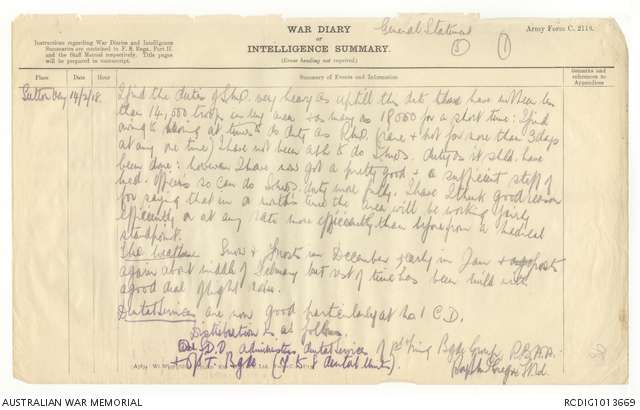 WAR DIARY
or
INTELLIGENCE SUMMARY.
(Erase heading not required.)
General Statement
Army Form C. 2118.
Instructions regarding War Diaries and Intelligence
Summaries are contained in F. S. Regs., Part II.
and the Staff Manual respectively. Title pages
will be prepared in manuscript.
Place
Date
Hour
Summary of Events and Information
Remarks and
references to
Appendices
Sutton Veny 14/3/18.
I find the duties of S.M.O. very heavy as up till this date there have not been less
than 14,000 troops in my area & as many as 18000 for a short time: I find
owing to having at times to do duty as P.M.O. (rare & not for more than 3 days
at any one time) I have not been able to do S.M.O's. duty as it shld. have
been done: however I have now got a pretty good & a sufficient staff of
med. officers so can do S.M.O's. duty more fully. I have I think good reason
for saying that in a month's time the area will be working fairly
efficiently or at any rate more efficiently than before from a medical
standpoint.
The weather. Snow & frosts in December & early in Jan & frosts
again about middle of February but rest of time has been mild with
a good deal of light rain.
Dental Services are now good particularly at No 1 C.D.
Distribution is as follows.
administers dental services of Trng Bgde Group
dental units).
AUSTRALIAN WAR MEMORIAL
RCDIG1013669